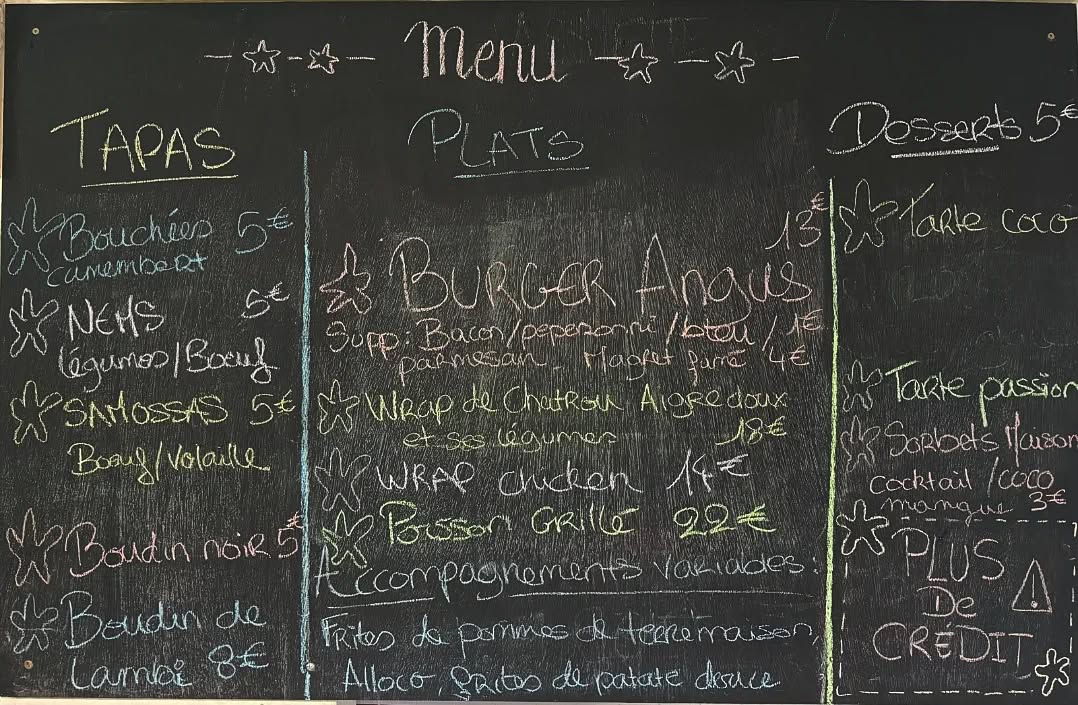 Menu
TAPAS
Bouchées 5€
camembert
NEMS 5€
légumes/Boeuf
SAMOSSAS 5€
Boeuf/Volaille
Boudin noir 5€
Boudin de
Lambi 8€
PLATS
13€
BURGER Angus
Supp: Bacon/peperonni/bleu/1€
parmesan - Magret fumé 4€
Wrap de Chatrou Aigre doux
et ses légumes 18€
WRAP chicken 14€
Poisson GRILLÉ 22€
Accompagnements variables:
Frites de pommes de terre maison,
Alloco, frites de patate douce
Desserts 5€
Tarte coco
Tarte passion
Sorbets Maison
cocktail/coco
mangue 3€
PLUS
De
CRÉDIT